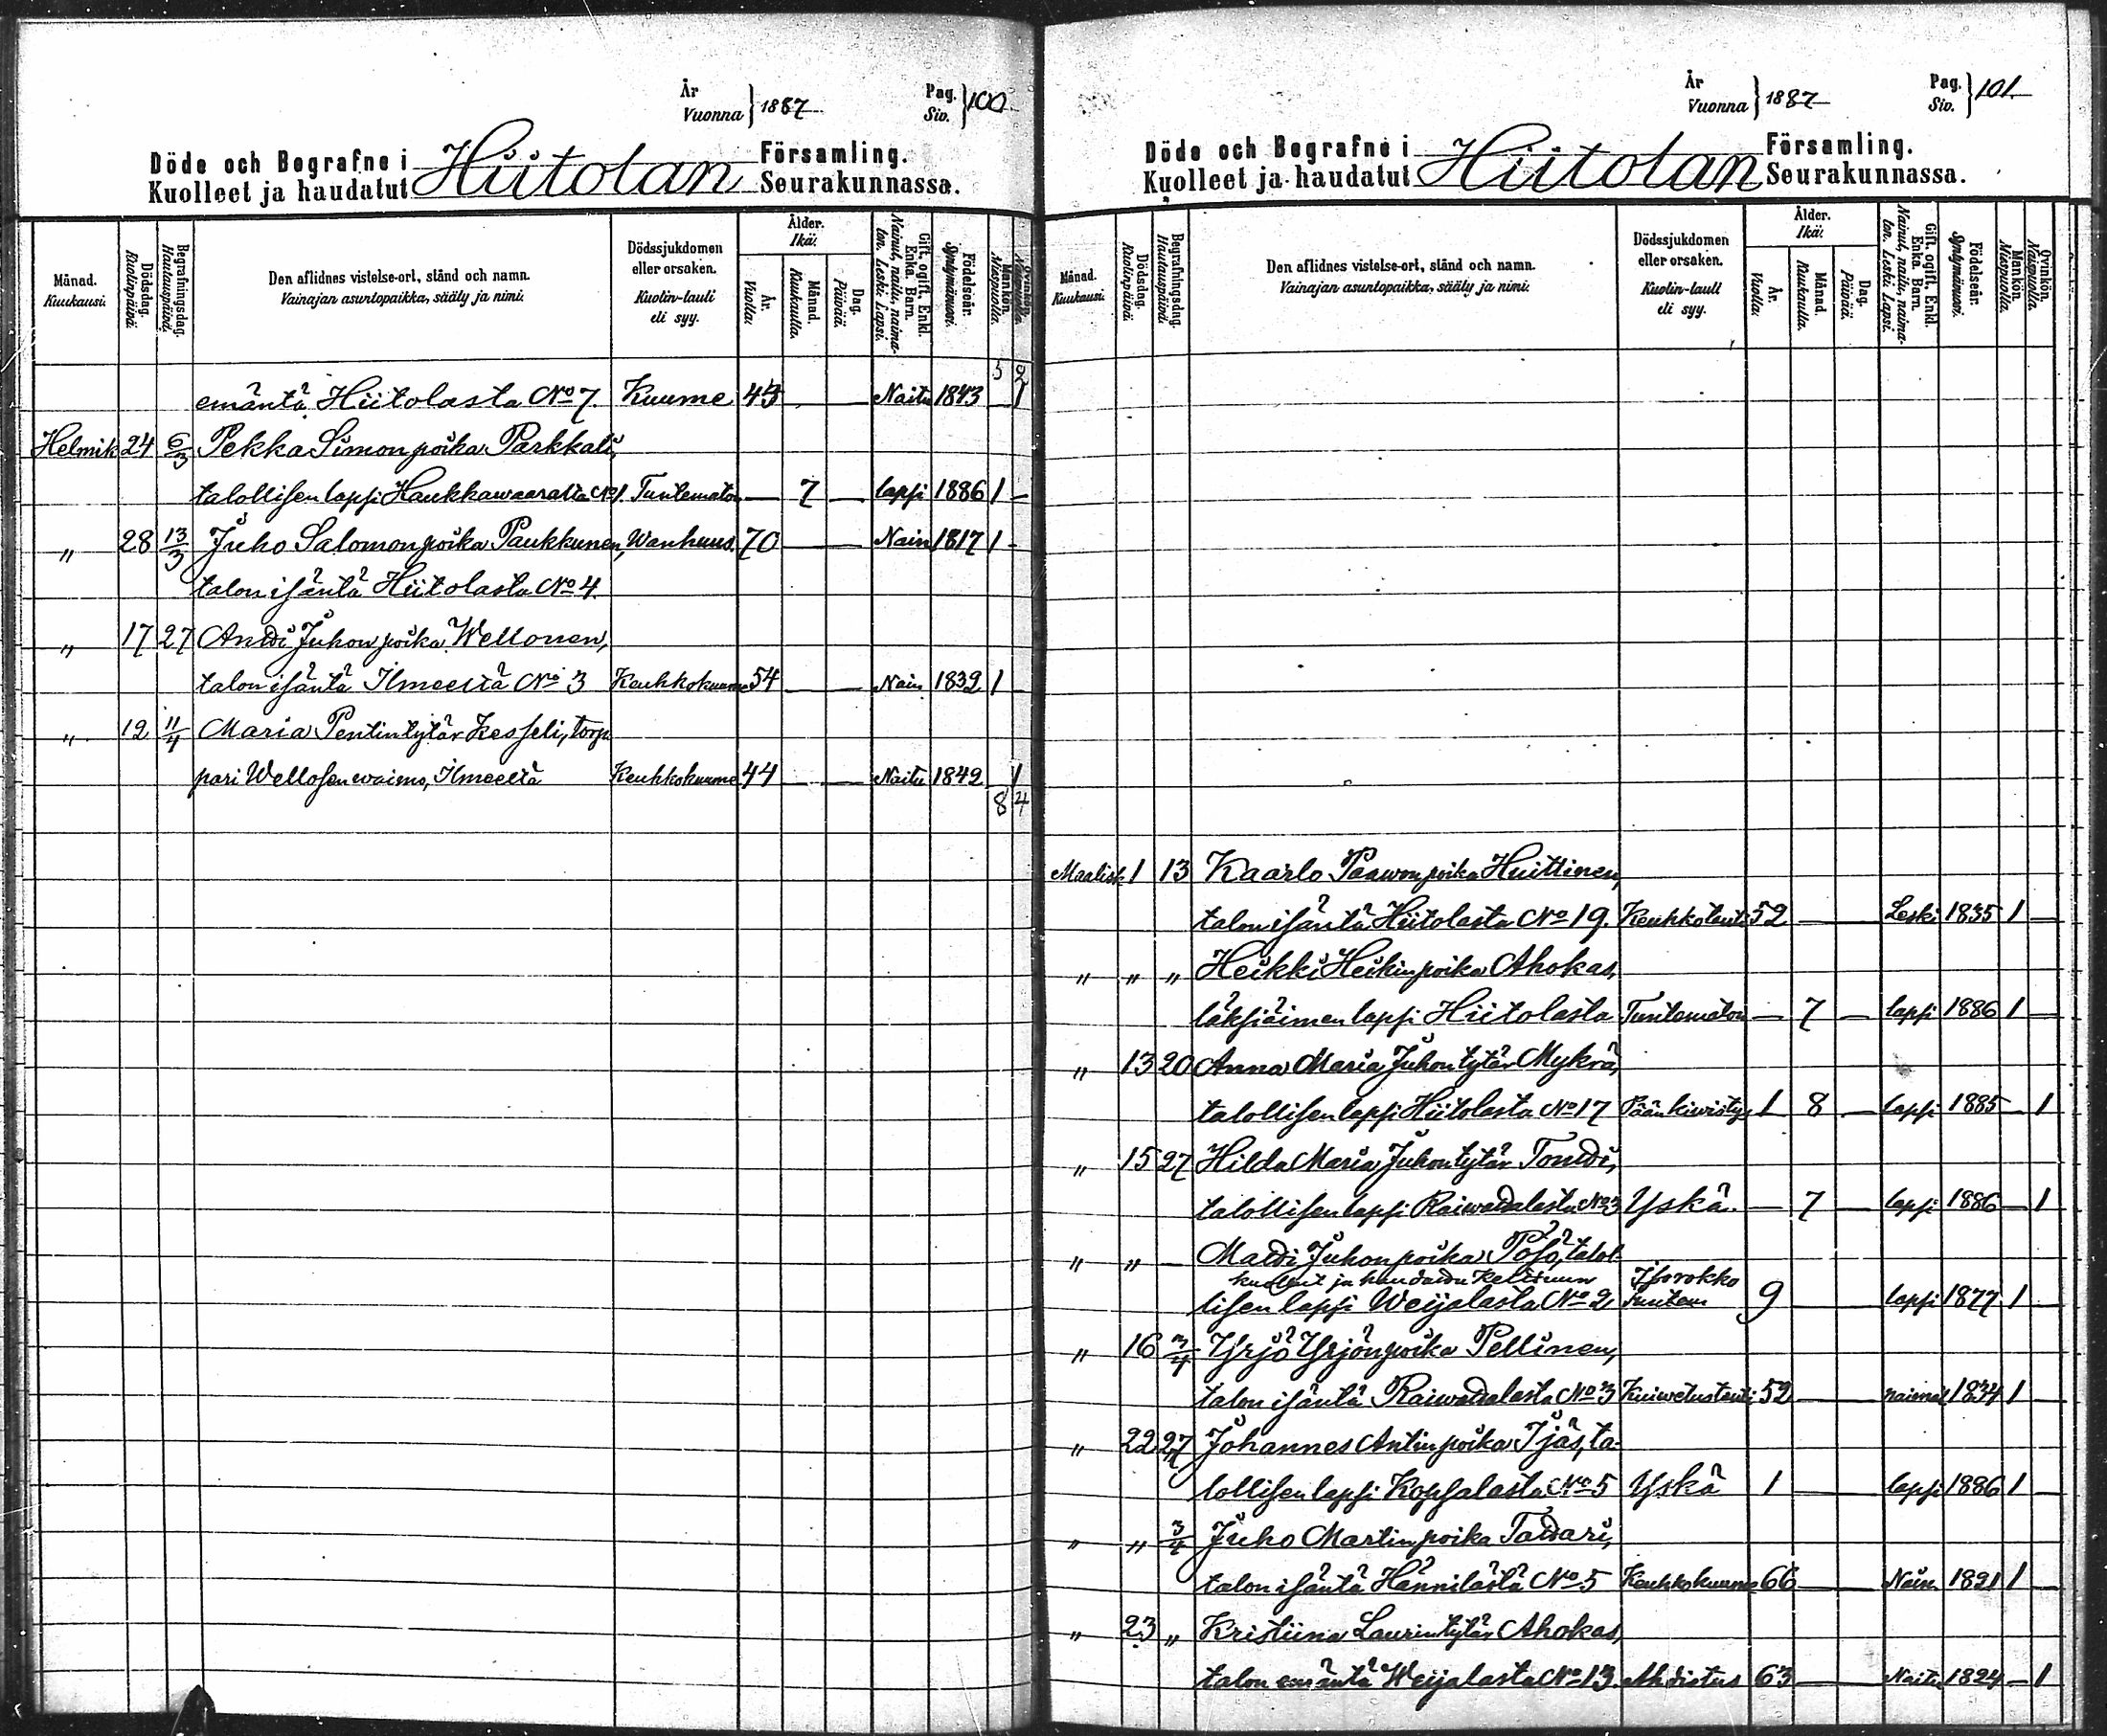 År
Vuonna } 1887
Pag.
Siv. } 100
Döde och Begrafne i Hiitolan Församling.
Kuolleet ja haudatut Seurakunnassa.
Månad. Kuukausi.
Dödsdag. Kuolinpäivä.
Begrafningsdag. Hautauspäivä.
Den aflidnes vistelse-ort, stånd och namn.
Vainajan asuntopaikka, sääty ja nimi.
Dödssjukdomen eller orsaken.
Kuolin-tauti eli syy.
Ålder. Ikä.
År. Vuotta.
Månad. Kuukautta.
Dag. Päivää.
Gift, ogift, Enkl. Enka. Barn.
Nainut, naitu, naimaton. Leski. Lapsi.
Födelseår. Syntymävuosi.
Mankön. Miespuolia.
Qvinkön. Naispuolia.
5 2
emäntä Hiitolasta No 7. Kuume 43 — — Naitu 1843 — 1
Helmik 24 6/3 Pekka Simonpoika Parkkali,
talollisen lapsi Haukkawaarasta No 1. Tuntematon — 7 — lapsi 1886 1 —
" 28 13/3 Juho Salomonpoika Paukkunen, Wanhuus. 70 — Nain 1817 1 -
talon isäntä Hiitolasta No 4.
" 17 27 Andi Juhonpoika Wellonen,
talon isäntä Ilmeeltä No 3 Keuhkokuume 54 — — Nain 1832 1 —
" 12 11/4 Maria Pentintytär Kesseli, torp
pari Wellosen waimo, Ilmeeltä Keuhkokuume 44 — — Naitu 1842 — 1
8 4
År
Vuonna } 1887
Pag.
Siv. } 101.
Döde och Begrafne i Hiitolan Församling.
Kuolleet ja haudatut Seurakunnassa.
Månad. Kuukausi.
Dödsdag. Kuolinpäivä.
Begrafningsdag. Hautauspäivä.
Den aflidnes vistelse-ort, stånd och namn.
Vainajan asuntopaikka, sääty ja nimi.
Dödssjukdomen eller orsaken.
Kuolin-tauti eli syy.
Ålder. Ikä.
År. Vuotta.
Månad. Kuukautta.
Dag. Päivää.
Gift, ogift, Enkl. Enka. Barn.
Nainut, naitu, naimaton. Leski. Lapsi.
Födelseår. Syntymävuosi.
Mankön. Miespuolia.
Qvinkön. Naispuolia.
Maalisk 1 13 Kaarlo Paawonpoika Huittinen,
talon isäntä Hiitolasta No 19. Keuhkotauti 52 — Leski 1835 1 —
" " " Heikki Heikinpoika Ahokas,
läksiäimen lapsi Hiitolasta Tuntematon — 7 — lapsi 1886 1 —
" 13 20 Anna Maria Juhontytär Mykrä,
talollisen lapsi Hiitolasta No 17 Päänkiwistys 1 8 — lapsi 1885 — 1
" 15 27 Hilda Maria Juhontytär Tondi,
talollisen lapsi Raiwattalasta No 3 Yskä. — 7 — lapsi 1886 — 1
" " — Matti Juhonpoika Pösö, talol
kuollut ja haudattu
lisen lapsi Weijalasta No 2 Isorokko 9 — lapsi 1877 1 —
" 16 3/4 Yrjö Yrjönpoika Pellinen,
talon isäntä Raiwattalasta No 3 Kuiwetustauti 52 — naimat 1834 1 —
" 22 27 Johannes Antinpoika Ijäs, ta-
lollisen lapsi Kopsalasta No 5 Yskä 1 — lapsi 1886 1 —
" " 3/4 Juho Martinpoika Tattari,
talon isäntä Hännilästä No 5 Keuhkokuume 66 — Nain 1821 1 —
" 23 " Kristiina Laurintytär Ahokas,
talon emäntä Weijalasta No 13. Ahdistus 63 — Naitu 1824 — 1